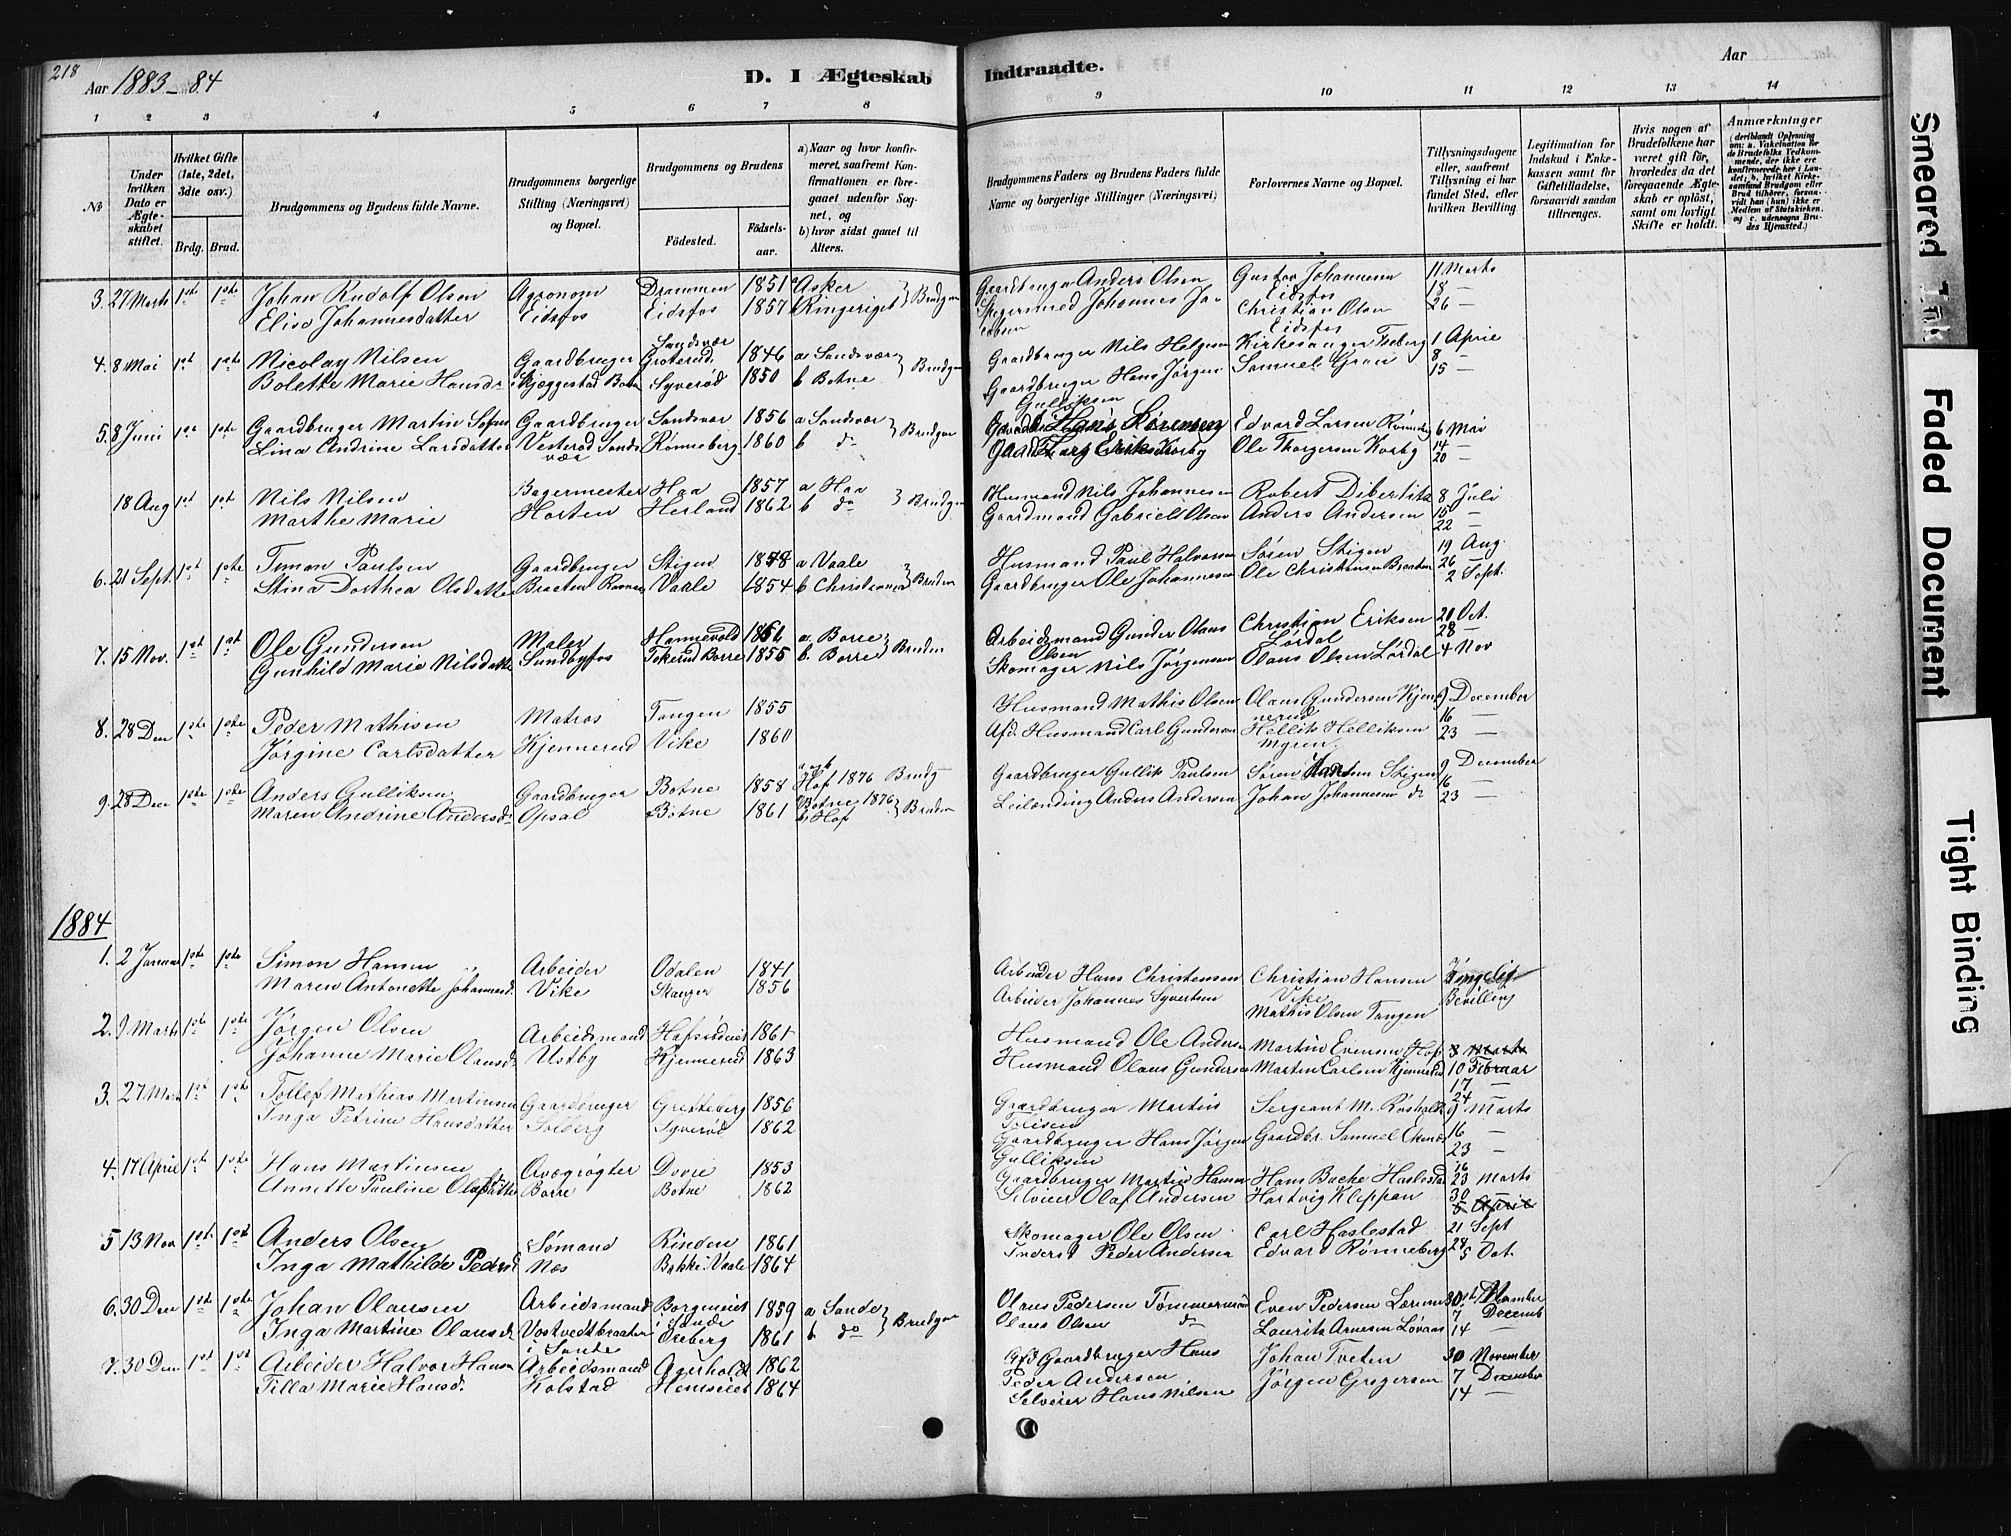 218
Aar 1883-84
D. I Ægteskab Indtraadte.
Aar
1 2 3 4 5 6 7 8 9 10 11 12 13 14
№
Under hvilken Dato er Ægteskabet stiftet.
Hvilket Gifte (1ste, 2det, 3dte osv.)
Brdg. Brud.
Brudgommens og Brudens fulde Navne.
Brudgommens borgerlige Stilling (Næringsvei) og Bopæl.
Brudgommens og Brudens
Fødested.
Fødselsaar.
a) Naar og hvor konfirmeret, saafremt Konfirmationen er foregaaet udenfor Sognet, og
b) hvor sidst gaaet til Alters.
Brudgommens Faders og Brudens Faders fulde Navne og borgerlige Stillinger (Næringsvei)
Forlovernes Navne og Bopæl.
Tillysningsdagene eller, saafremt Tillysning ei har fundet Sted, efter hvilken Bevilling.
Legitimation for Indskud i Enkekassen samt for Giftetilladelse, forsaavidt saadan tiltrænges.
Hvis nogen af Brudefolkene har været gift før, hvorledes da det foregaaende Ægteskab er opløst, samt om lovligt Skifte er holdt.
Anmærkninger
(deriblandt Oplysning om: a. Vakcination for de Brudefolks Vedkommende, der ikke ere konfirmerede her i Landet; b. hvilket Kirkesamfund Brudgom eller Brud tilhører, forsaavidt han (hun) ikke er Medlem af Statskirken, og c. udensogns Brudes Hjemsted.)
3. 27 Marts 1ste 1ste Johan Rudolf Olsen Agronom Drammen 1851 a Asker } Brudgom Gaardbruger Anders Olsen Gustav Johannesen 11 Marts
Elise Johannesdatter Eidsfos Eidsfos 1857 Ringeriget Spegersmed Johannes Jacobsen Eidsfos 18 —
Christian Olsen Eidsfos 26 —
4. 8 Mai 1ste 1ste Nicolay Nilsen Gaardbruger Sandsvær Groterud 1846 a Sandsvær } Brudgom Gaardbruger Nils Helgesen Kirkesanger Freberg 1 April
Bolette Marie Hansdr Skjæggestad Botne Syverød 1850 b Botne Gaardbruger Hans Jørgen Gulliksen Samuel Gran 8 —
15 —
5. 8 Juni 1ste 1ste Gaardbruger Martin Gaardbruger Sandsvær 1856 a Sandsvær } Brudgom Hans Sørensen Edvard Larsen Rønneberg 6 Mai
Lina Andrine Larsdatter Vesterød Sandsvær Rønneberg 1860 b do Lars Eriksen Korby Ole Thorgersen Korby 14 —
20 —
18 Aug 1ste 1ste Nils Nilsen Bagermester Haa 1857 a Haa } Brudgom Husmand Nils Johannesen Robert Dibertitz 8 Juli
Marthe Marie Horten Herland 1862 b do Gaardmand Gabriel Olsen Anders Andersen 15 —
22 —
6. 21 Sept. 1ste 1ste Simon Paulsen Gaardbruger Stigen 1848 a Vaale } Bruden Husmand Paul Halvorsen Søren Stigen 19 Aug.
Stina Dorthea Olsdatter Braaten Vaale 1854 b Christiania Gaardbruger Ole Johannesen Ole Christensen Braaten 26 —
2 Sept.
7. 15 Nov. 1ste 1ste Ole Gundersen Maler Hannevold 1861 a. Borre } Bruden Arbeidsmand Gunder Olaus Olsen Christian Eriksen Lørdal 21 Oct.
Gunhild Marie Nilsdatter Sundbyfos Tokerud Borre 1855 b. Borre Skomager Nils Jørgensen Olaus Olsen Lørdal 28 —
4 Nov
8. 28 Dec 1ste 1ste Peder Mathisen Matros Tangen 1855 Husmand Mathis Olsen Olaus Gundersen Kjennerud 9 December
Jørgine Carlsdatter Kjennerud Vike 1860 Afd. Husmand Carl Gundersen Hellik Helliksen Myren 16 —
23 —
9. 28 Dec 1ste 1ste Anders Gulliksen Gaardbruger Botne 1858 a og b Hof 1876 Brudg Gaardbruger Gullik Paulsen Søren Stigen 9 December
Maren Andrine Andersdr Opsal Botne 1861 Botne 1876 b. Hof } Bruden Leilending Anders Andersen Johan Johannesen do 16 —
23 —
1884
1. 2 Januar 1ste 1ste Simon Hansen Arbeider Odalen 1841 Arbeider Hans Christensen Christian Hansen Vike Kongelig
Maren Antonette Johannesd. Vike Skauger 1856 Arbeider Johannes Syvertsen Mathis Olsen Tangen Bevilling
2. 9 Marts 1ste 1ste Jørgen Olsen Arbeidsmand 1861 Husmand Ole Andersen Martin Evensen Hof 3 Marts
Johanne Marie Olausd. Ustby Kjennerud 1863 Husmand Olaus Gundersen Martin Carlsen Kjennerud 10 Februar
17 —
24 —
3. 27 Marts 1ste 1ste Tollef Mathias Martinsen Gaardbruger Gretteberg 1856 Gaardbruger Martin Torisen Sergeant M. Røsholdt 9 Marts
Inga Petrine Hansdatter Solberg Syverød 1862 Gaardbruger Hans Jørgen Gulliksen Gaardbr. Samuel 16 —
23 —
4. 17 April 1ste 1ste Hans Martinsen Qvægrøgter Dovre 1853 Gaardbruger Martin Hansen Hans Bache Haslestad 16
Annette Pauline Olafsdatter Borre Botne 1862 Selveier Olaf Andersen Hartvig Kleppan 23 Marts
30 —
5 April
5 13 Nov 1ste 1ste Anders Olsen Sømand Rinden 1861 Skomager Ole Olsen Carl Haslestad 21 Sept
Inga Mathilde Pedersd Næs Bakke i Vaale 1864 Inderst Peder Andersen Edvard Rønneberg 28
5 Oct.
6. 30 Dec 1ste 1ste Johan Olausen Arbeidsmand Borgeneiet i Sande 1859 a Sande } Brudgom Olaus Pedersen Tømmermand Even Pedersen 30 November
Inga Martine Olausdr Vostvedtbraaten i Sande Oreberg 1861 b do Olaus Olsen do Laurits Arnesen Løvaas 7 Decemb
14 —
7. 30 Dec 1ste 1ste Arbeider Halvor Hansen Arbeidsmand Agerholdt 1862 Afd Gaardbruger Hans Peder Andersen Johan Tveten 30 November
Tilla Marie Hansd. Kolstad Hemseiet 1864 Selveier Hans Nilsen Jørgen Gregersen 7 December
14 —
Smeared Ink
Faded Document
Tight Binding